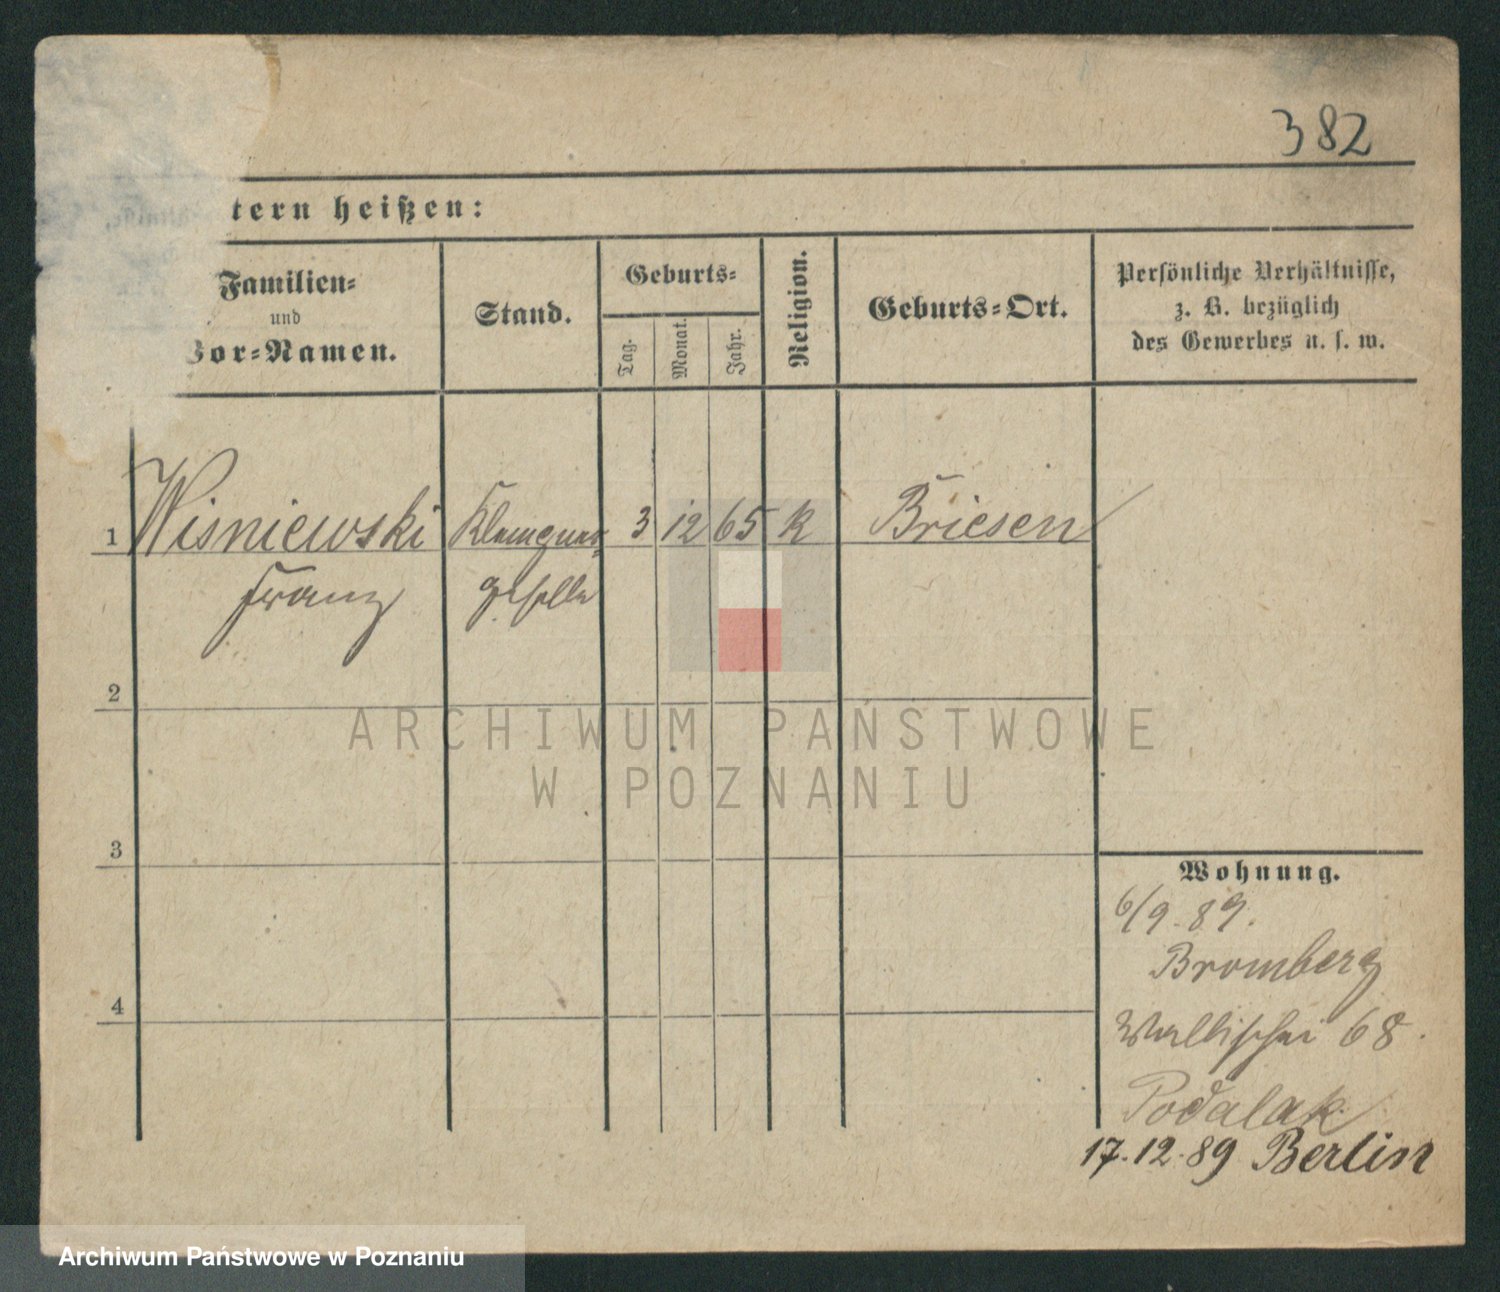 382
tern heißen:
Familien-
und
Vor-Namen.
Stand.
Geburts-
Tag.
Monat.
Jahr.
Religion.
Geburts-Ort.
Persönliche Verhältnisse,
z. B. bezüglich
des Gewerbes u. s. w.
1 Wisniewski Klempner- 3 12 65 K Briesen
Franz geselle
2
3
4
Wohnung.
6/9. 89.
Bromberg
Wallischei 68.
Podalak
17.12.89 Berlin
ARCHIWUM PAŃSTWOWE
W POZNANIU
Archiwum Państwowe w Poznaniu